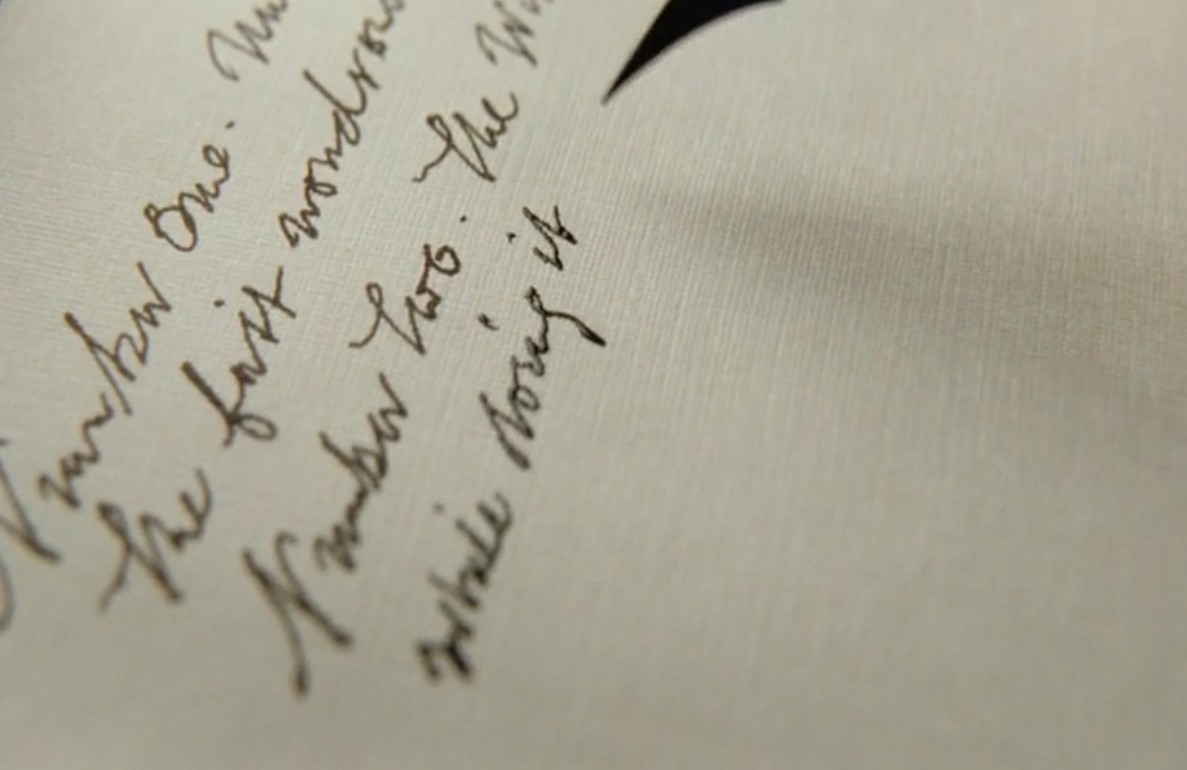 Number One.
the first wondrous
Number Two. The
while doing it